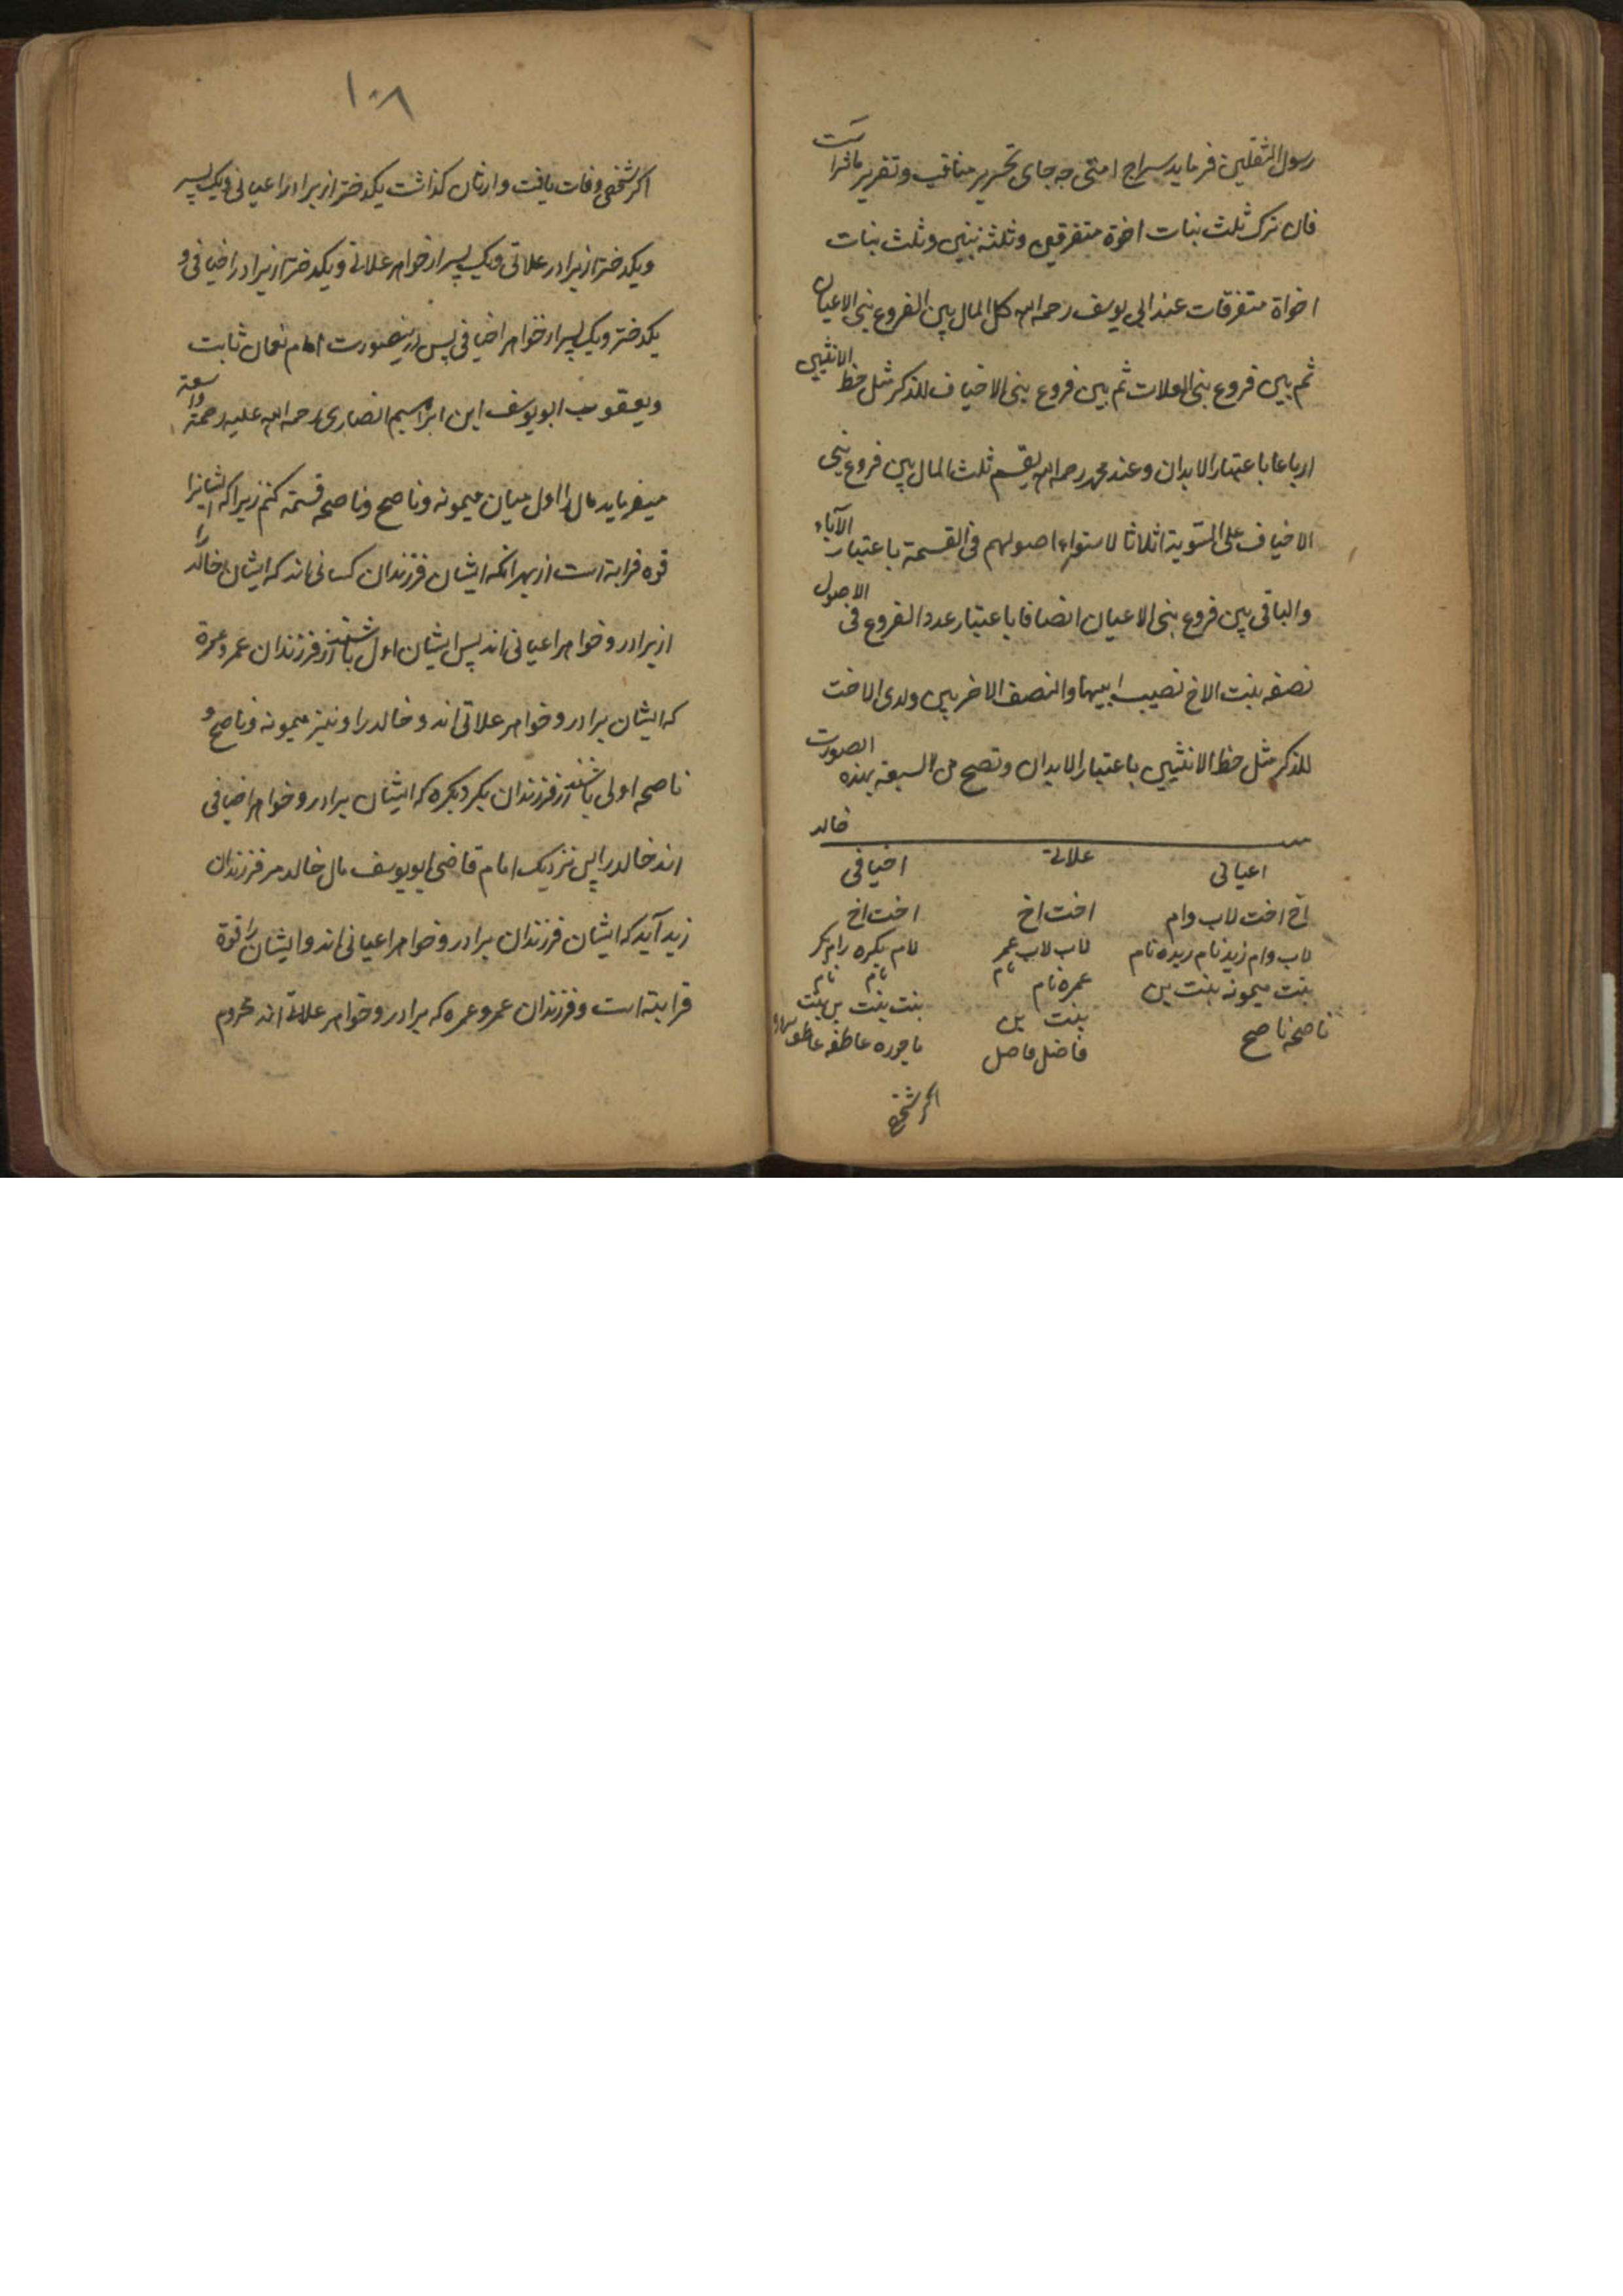 رسول الثقلین فرماید سراج امتی چه جای تحریر مناقب و تقریر ماثر است
فان ترک ثلث بنات اخوة متفرقین وثلثة بنین وثلث بنات
اخواة متفرقات عند ابی یوسف رحمه الله کل المال بین الفروع بنی الاعیان
ثم بین فروع بنی العلات ثم بین فروع بنی الاخیاف للذکر مثل حظ الانثیین
ارباعا باعتبار الابدان وعند محمد رحمه الله یقسم ثلث المال بین فروع بنی
الاخیاف علی السویة اثلاثا لاستواء اصولهم فی القسمة باعتبار الآباء
والباقی بین فروع بنی الاعیان انصافا باعتبار عدد الفروع فی الاصول
نصفه بنت الاخ نصیب ابیها والنصف الاخر بین ولدی الاخت
للذکر مثل حظ الانثیین باعتبار الابدان وتصح من السبعة بهذه الصورت
خالد
اعیانی علاتی اخیافی
اخ اخت لاب وام اخت اخ اخت اخ
لاب وام زید نام زیده نام لاب لاب عمر لام بکره
عمره نام نام نام نام
بنت میمونه بنت بن بنت بن بنت بنت بن
ناصحه ناصح فاضل عاطفه
اکر شخصی
۱۰۸
اکر شخصی وفات یافت وارثان کذاشت یکدختر از برادر اعیانی ویک پسر
ویکدختر از برادر علاتی ویک پسر از خواهر علاتی ویکدختر از برادر اخیافی و
یکدختر ویک پسر از خواهر اخیافی پس درینصورت امام نعمان ثابت
ویعقوب ابویوسف ابن ابراهیم انصاری رحمه الله علیه رحمة واسعة
میفرماید مال را اول میان میمونه وناصح وناصحه قسمة کنم زیراکه ایشانرا
قوه قرابة است از بهر انکه ایشان فرزندان کسانی اند که ایشان خالد را
از برادر وخواهر اعیانی اند پس ایشان اول باشند از فرزندان عمر وعمرة
که ایشان برادر وخواهر علاتی اند و خالد را ونیز میمونه وناصح و
ناصحه اولی باشند از فرزندان بکر وبکره که ایشان برادر وخواهر اخیافی
اند خالد را پس نزدیک امام قاضی ابویوسف مال خالد مر فرزندان
زید آید که ایشان فرزندان برادر وخواهر اعیانی اند وایشان را قوة
قرابته است وفرزندان عمر وعمره که برادر وخواهر علاتی اند محروم